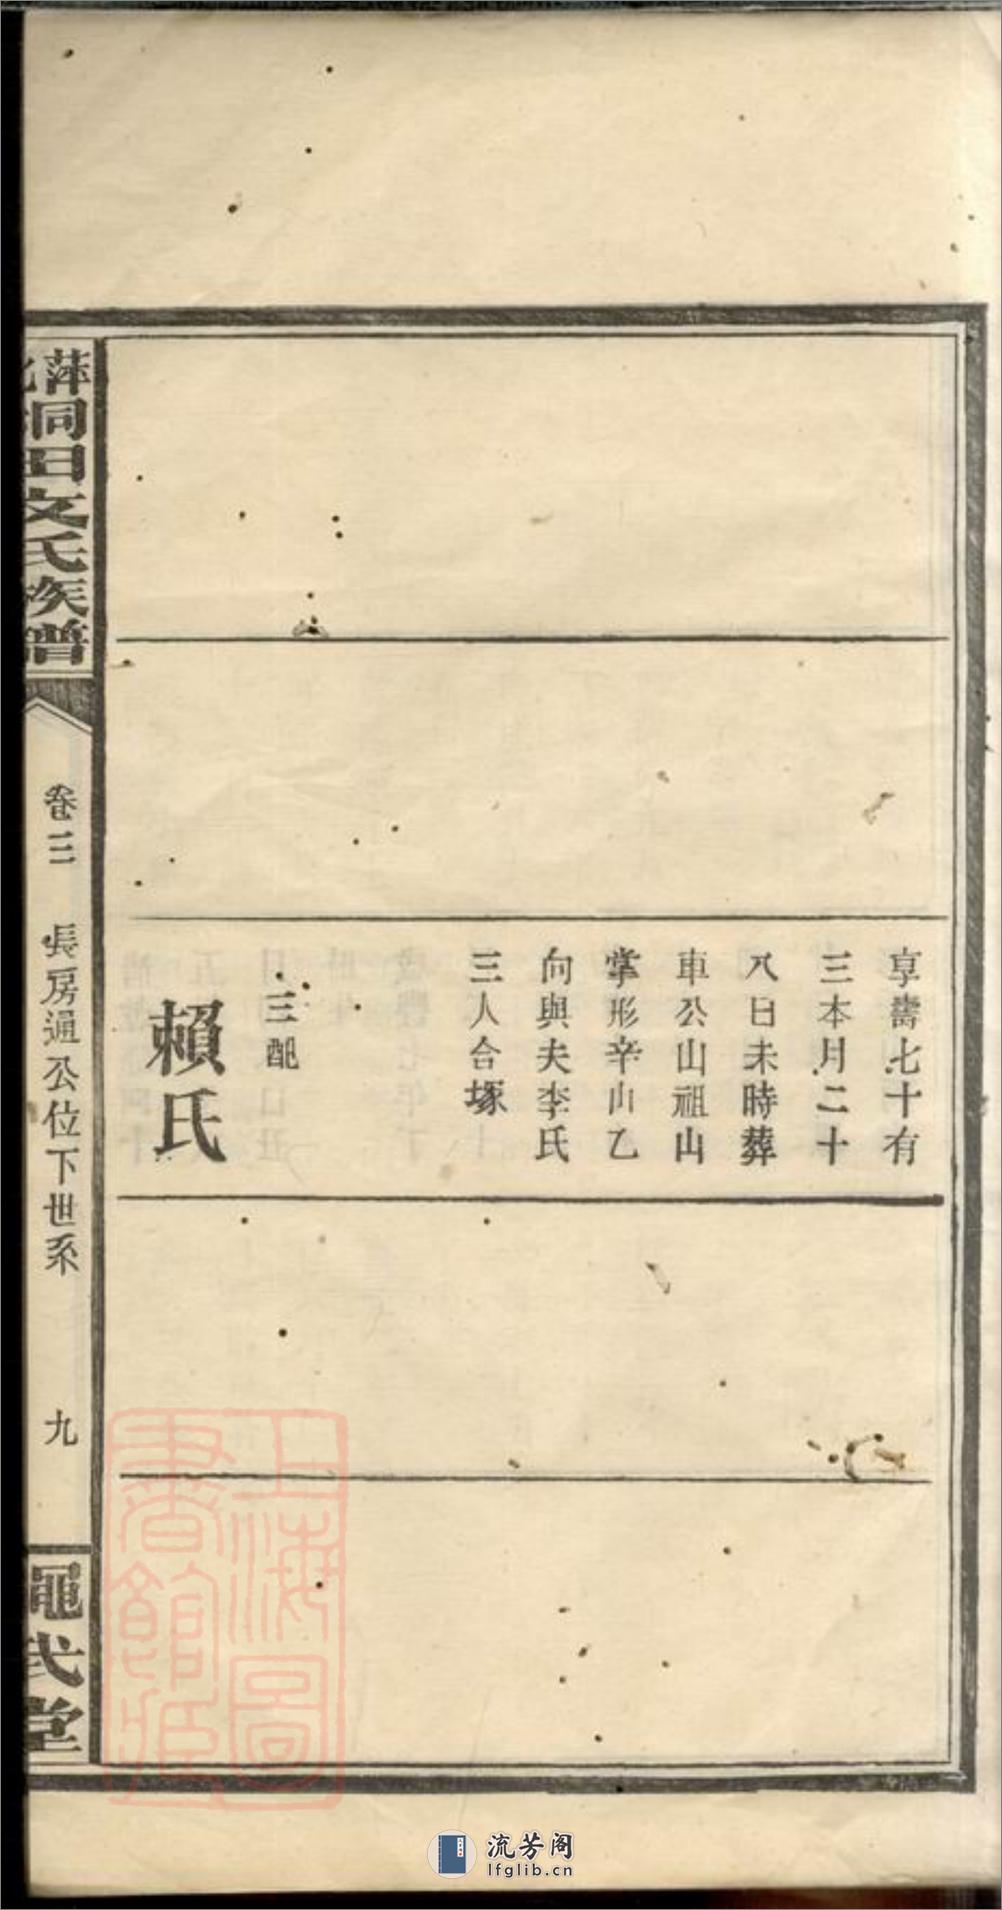 享壽七十有
三本月二十
八日未時葬
車公山祖山
掌形辛山乙
向與夫李氏
三人合塚
三配
賴氏
萍洞田文氏族譜
卷三
長房通公位下世系
九
黽武堂
上海圖書館藏
流芳阁
lfglib.cn